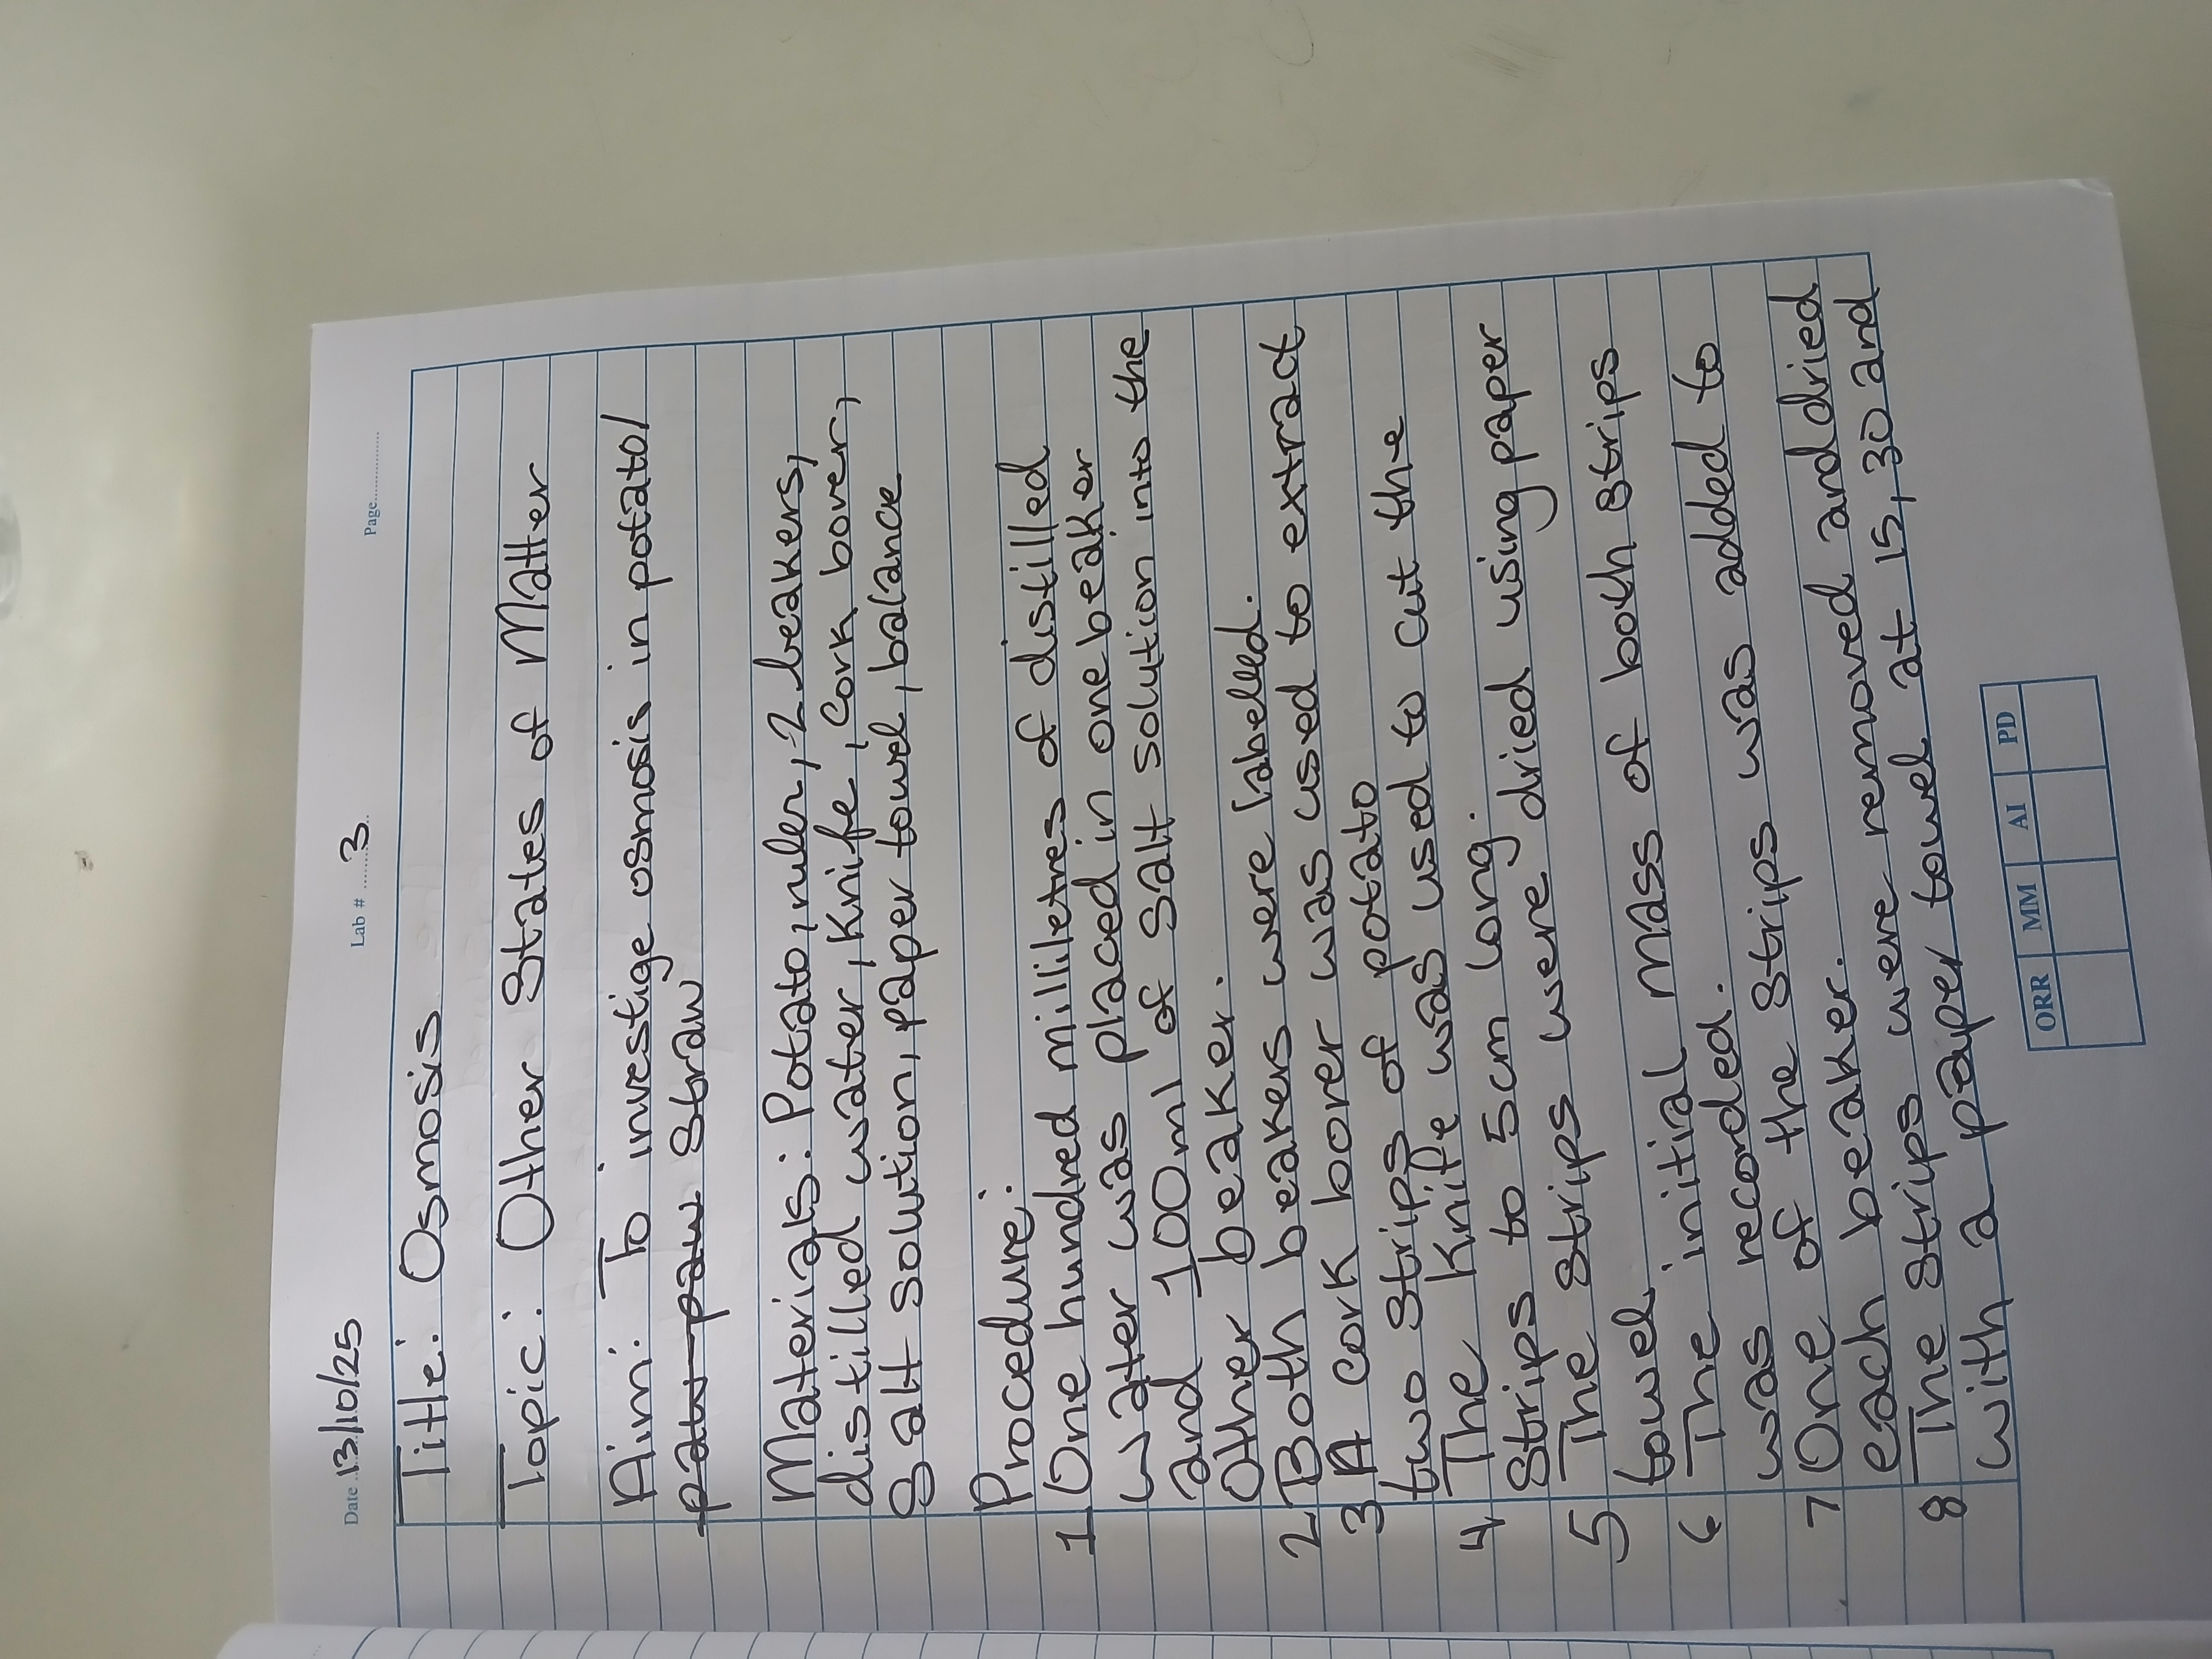 Date 13/10/25 Lab # 3 Page
Title: Osmosis
Topic: Other States of Matter
Aim: To investige osmosis in potato/
paw paw straw
Materials: Potato, ruler, 2 beakers,
distilled water, knife, cork borer,
salt solution, paper towel, balance
Procedure:
1 One hundred milliletres of distilled
water was placed in one beaker
and 100ml of salt solution into the
other beaker.
2 Both beakers were labeled.
3 A cork borer was used to extract
two strips of potato
4 The knife was used to cut the
strips to 5cm long.
5 The strips were dried using paper
towel
6 The initial mass of both strips
was recorded.
7 One of the strips was added to
each beaker.
8 The strips were removed and dried
with a paper towel at 15, 30 and
ORR MM AI PD